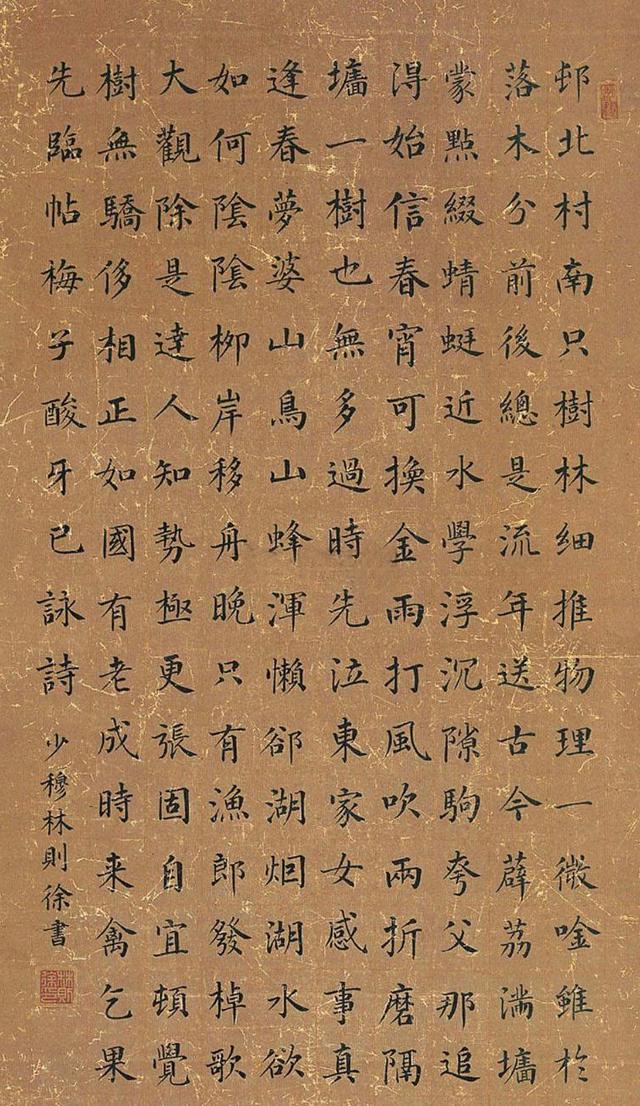 邨北村南只樹林細推物理一微唫雖於
落木分前後總是流年送古今薜荔满墻
蒙點綴蜻蜓近水學浮沉隙駒夸父那追
得始信春宵可換金雨打風吹兩折磨隔
墻一樹也無多過時先泣東家女感事真
逢春夢婆山鳥山蜂渾懶郤湖烟湖水欲
如何陰陰柳岸移舟晚只有漁郎發棹歌
大觀除是達人知勢極更張固自宜頓覺
樹無驕侈相正如國有老成時来禽乞果
先臨帖梅子酸牙已詠詩
少穆林則徐書